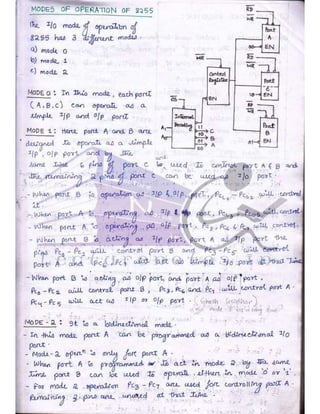 MODES OF OPERATION OF 8255
The I/O mode of operation of
8255 has 3 different modes
a) mode 0
b) mode 1
c) mode 2
RD
WR
Port
A
EN
Control
Register
EN
CS
Internal
Decoding
A1
A0
11
10
01
00
C
B
A
RD
WR
Port
C
EN
RD
WR
Port
B
EN
MODE 0: In this mode, each port
(A,B,C) can operate as a
simple I/P and O/P port
MODE 1: Here port A and B are
designed to operate as a simple
I/P, O/P port and by the
same time 6 pins of port C is used to control port A & B and
the remaining 2 pins of port C can be used as I/O port.
- When port B is operation as I/P & O/P port, will control
it.
- When port A is operating as I/P port, will control
- When port A is operating as O/P port, will control.
- When port B is acting as I/P port, port A as I/P port the
pins will control port B and will control
port A and will act as simple I/O port at that time.
- When port B is acting as O/P port and port A as O/P port.
PC0 - PC2 will control port B, PC3, PC6 and PC7 will control port A.
PC4 - PC5 will act as I/P or O/P port.
MODE - 2: It is a bidirectional mode.
- In this mode port A can be programmed as a bidirectional I/O
port.
- Mode-2 operⁿ is only for port A.
- When port A is programmed to act in mode 2 by the same
time port B can be used to operate either in mode 0 or '1'.
- For mode 2 operation PC3 - PC7 are used for controlling port A.
Remaining 3 pins are unused at that time.